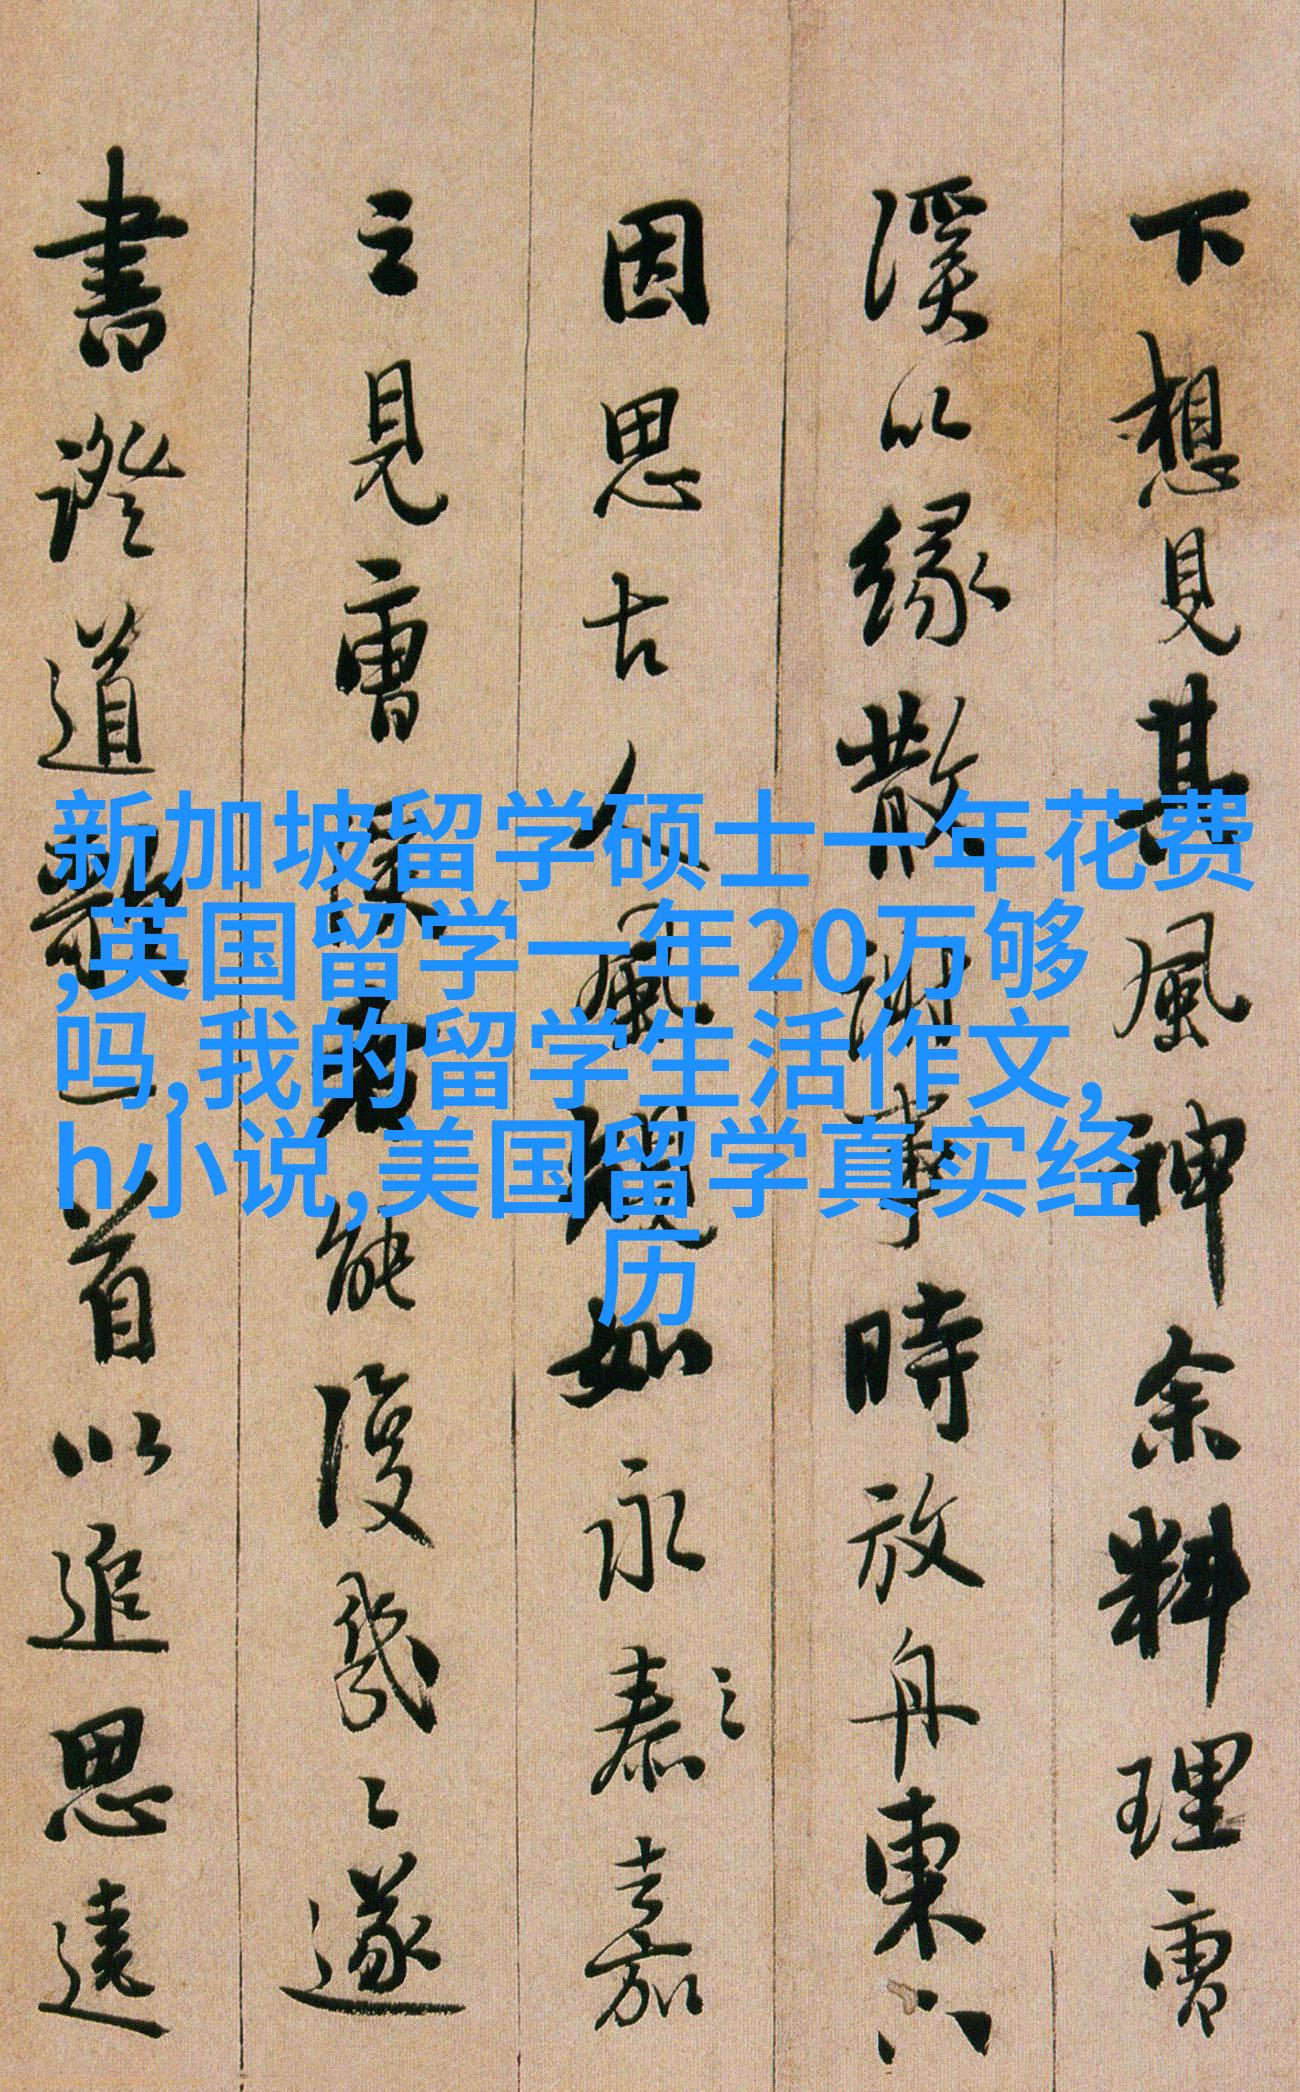 下想見其風神余料理
溪以緣散謝事時放舟東下
因思古人風規如永泰之嘉
之見能復遂
書證道歌一首以追思遠
新加坡留学硕士一年花费
,英国留学一年20万够
吗,我的留学生活作文,
h小说,美国留学真实经
历